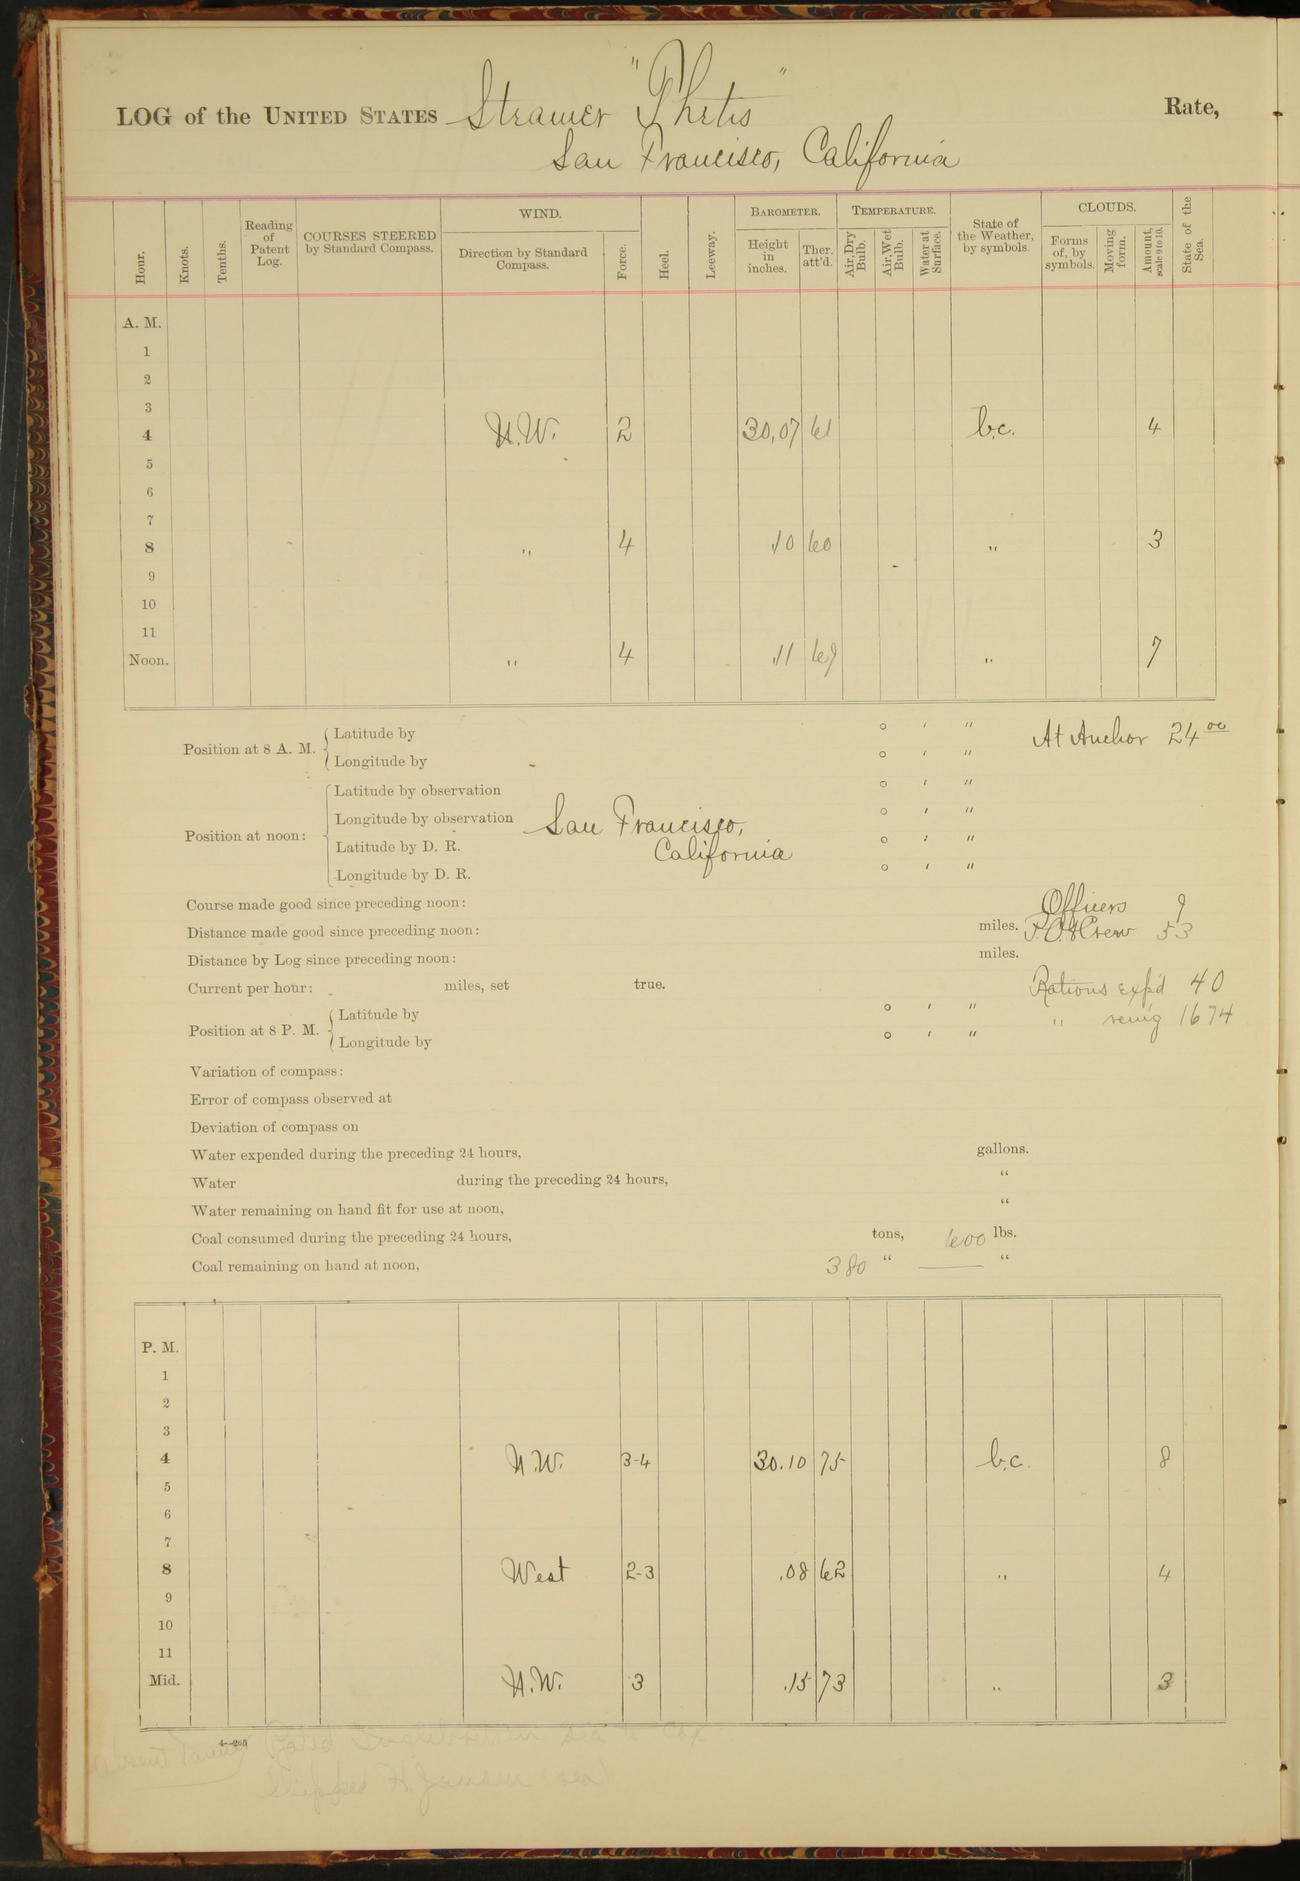 LOG of the UNITED STATES Steamer "Thetis" Rate,
San Francisco, California
Hour. Knots. Tenths. Reading of Patent Log. COURSES STEERED by Standard Compass. WIND. Direction by Standard Compass. Force. Heel. Leeway. BAROMETER. Height in inches. Ther. att'd. TEMPERATURE. Air, Dry Bulb. Air, Wet Bulb. Water at Surface. State of the Weather, by symbols. CLOUDS. Forms of, by symbols. Moving form. Amount, scale 0 to 10. State of the Sea.
A. M.
1
2
3
4 N.W. 2 30,07 61 b.c. 4
5
6
7
8 " 4 .10 60 " 3
9
10
11
Noon. " 4 .11 69 " 7
Position at 8 A. M. Latitude by ° ' " At Anchor 24 00
Longitude by ° ' "
Position at noon: Latitude by observation ° ' "
Longitude by observation San Francisco, ° ' "
Latitude by D. R. California ° ' "
Longitude by D. R. ° ' "
Course made good since preceding noon: Officers 9
Distance made good since preceding noon: miles. P.O. & Crew 53
Distance by Log since preceding noon: miles.
Current per hour: miles, set true. Rations exp'd 40
Position at 8 P. M. Latitude by ° ' " " rem'g 1674
Longitude by ° ' "
Variation of compass:
Error of compass observed at
Deviation of compass on
Water expended during the preceding 24 hours, gallons.
Water during the preceding 24 hours, "
Water remaining on hand fit for use at noon, "
Coal consumed during the preceding 24 hours, tons, 600 lbs.
Coal remaining on hand at noon, 380 " "
P. M.
1
2
3
4 N.W. 3-4 30.10 75 b.c. 8
5
6
7
8 West 2-3 .08 62 " 4
9
10
11
Mid. N.W. 3 .15 73 " 3
4—265
Absent Rated
Shipped H. Jansen (sea)